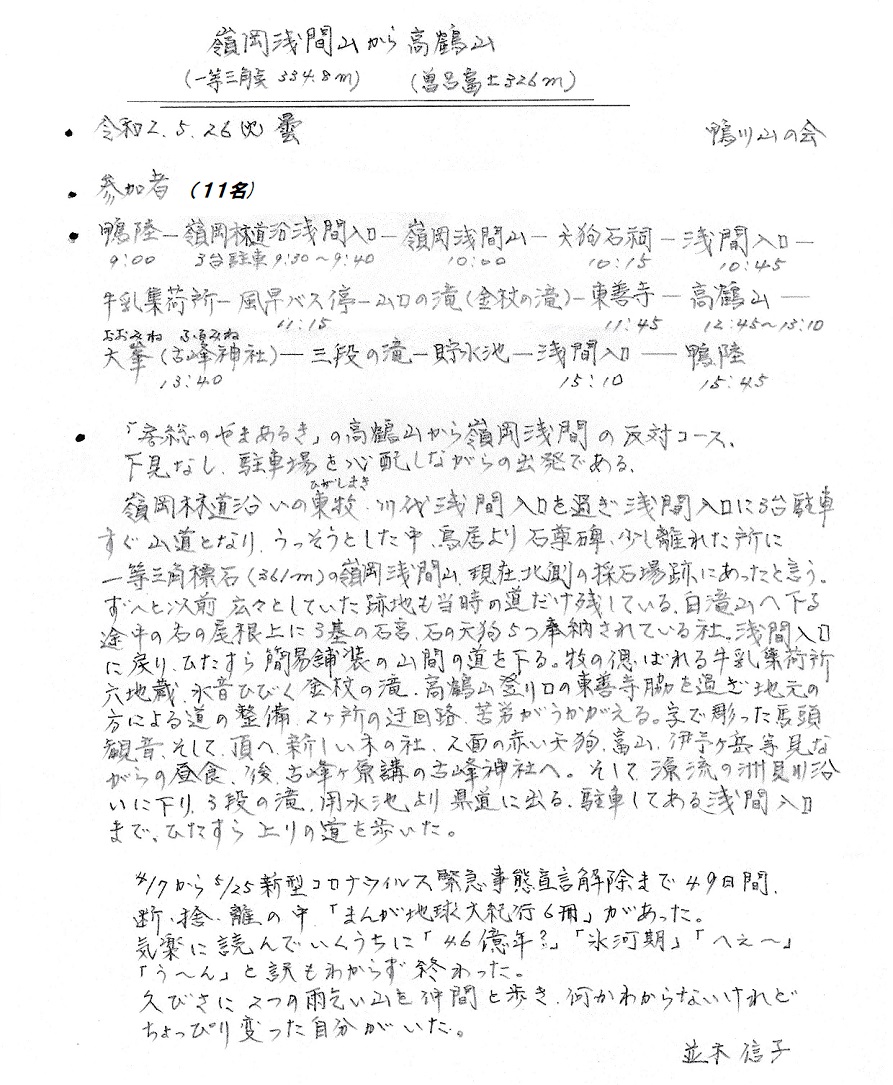 嶺岡浅間山から高鶴山
(一等三角点 334.8m) (曽呂富士326m)
・令和2.5.26(火)曇 鴨川山の会
・参加者 (11名)
・鴨陸―嶺岡林道沿浅間入口―嶺岡浅間山―天狗石祠―浅間入口―
9:00 3台駐車9:30~9:40 10:00 10:15 10:45
牛乳集荷所―風早バス停―山口の滝(金杖の滝)―東善寺―高鶴山―
11:15 11:45 12:45~13:10
おおみね ふるみね
大峯(古峰神社)―三段の滝―貯水池―浅間入口―鴨陸
13:40 15:10 15:45
・「房総のやまあるき」の高鶴山から嶺岡浅間の反対コース、
下見なし、駐車場を心配しながらの出発である、
ひがしまき
嶺岡林道沿いの東牧・川代浅間入口を過ぎ浅間入口に3台駐車
すぐ山道となり、うっそうとした中、鳥居より石草碑、少し離れた所に
一等三角標石(361m)の嶺岡浅間山、現在北側の採石場跡にあったと言う。
ずーと以前広々としていた跡地も当時の道だけ残している、白滝山へ下る
途中の右の尾根上に3基の石宮、石の天狗5つ奉納されている社。浅間入口
に戻り、ひたすら簡易舗装の山間の道を下る。牧の偲ばれる牛乳集荷所
六地蔵、水音ひびく金杖の滝、高鶴山登り口の東善寺脇を過ぎ地元の
方による道の整備、2ヶ所の迂回路、苦労がうかがえる。字で彫った馬頭
観音、そして、頂へ、新しい木の社、2面の赤い天狗、富山、伊予ヶ岳等見な
がらの昼食、後、古峰ヶ原講の古峰神社へ。そして、源流の洲貝川沿
いに下り、3段の滝、用水池より県道に出る、駐車してある浅間入口
まで、ひたすら上りの道を歩いた。
4/7から5/25新型コロナウイルス緊急事態宣言解除まで49日間、
断・捨・離の中、「まんが地球大紀行6冊」があった。
気楽に読んでいくうちに「46億年?」「氷河期」「へぇ~」
「う~ん」と訳もわからず終わった。
久びさに2つの雨乞い山を仲間と歩き、何かわからないけれど
ちょっぴり変った自分がいた。
並木信子